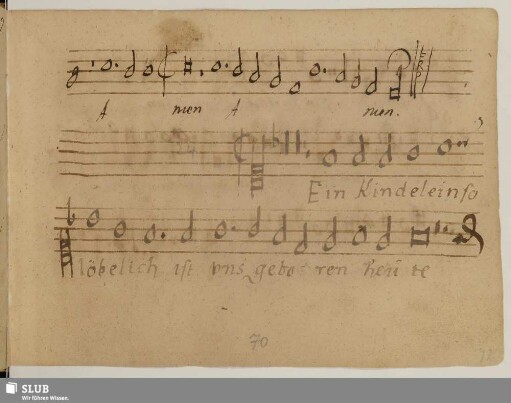 A men A men.
Ein Kindelein so
löbelich ist vns gebo ren heü te
70
SLUB
Wir führen Wissen.